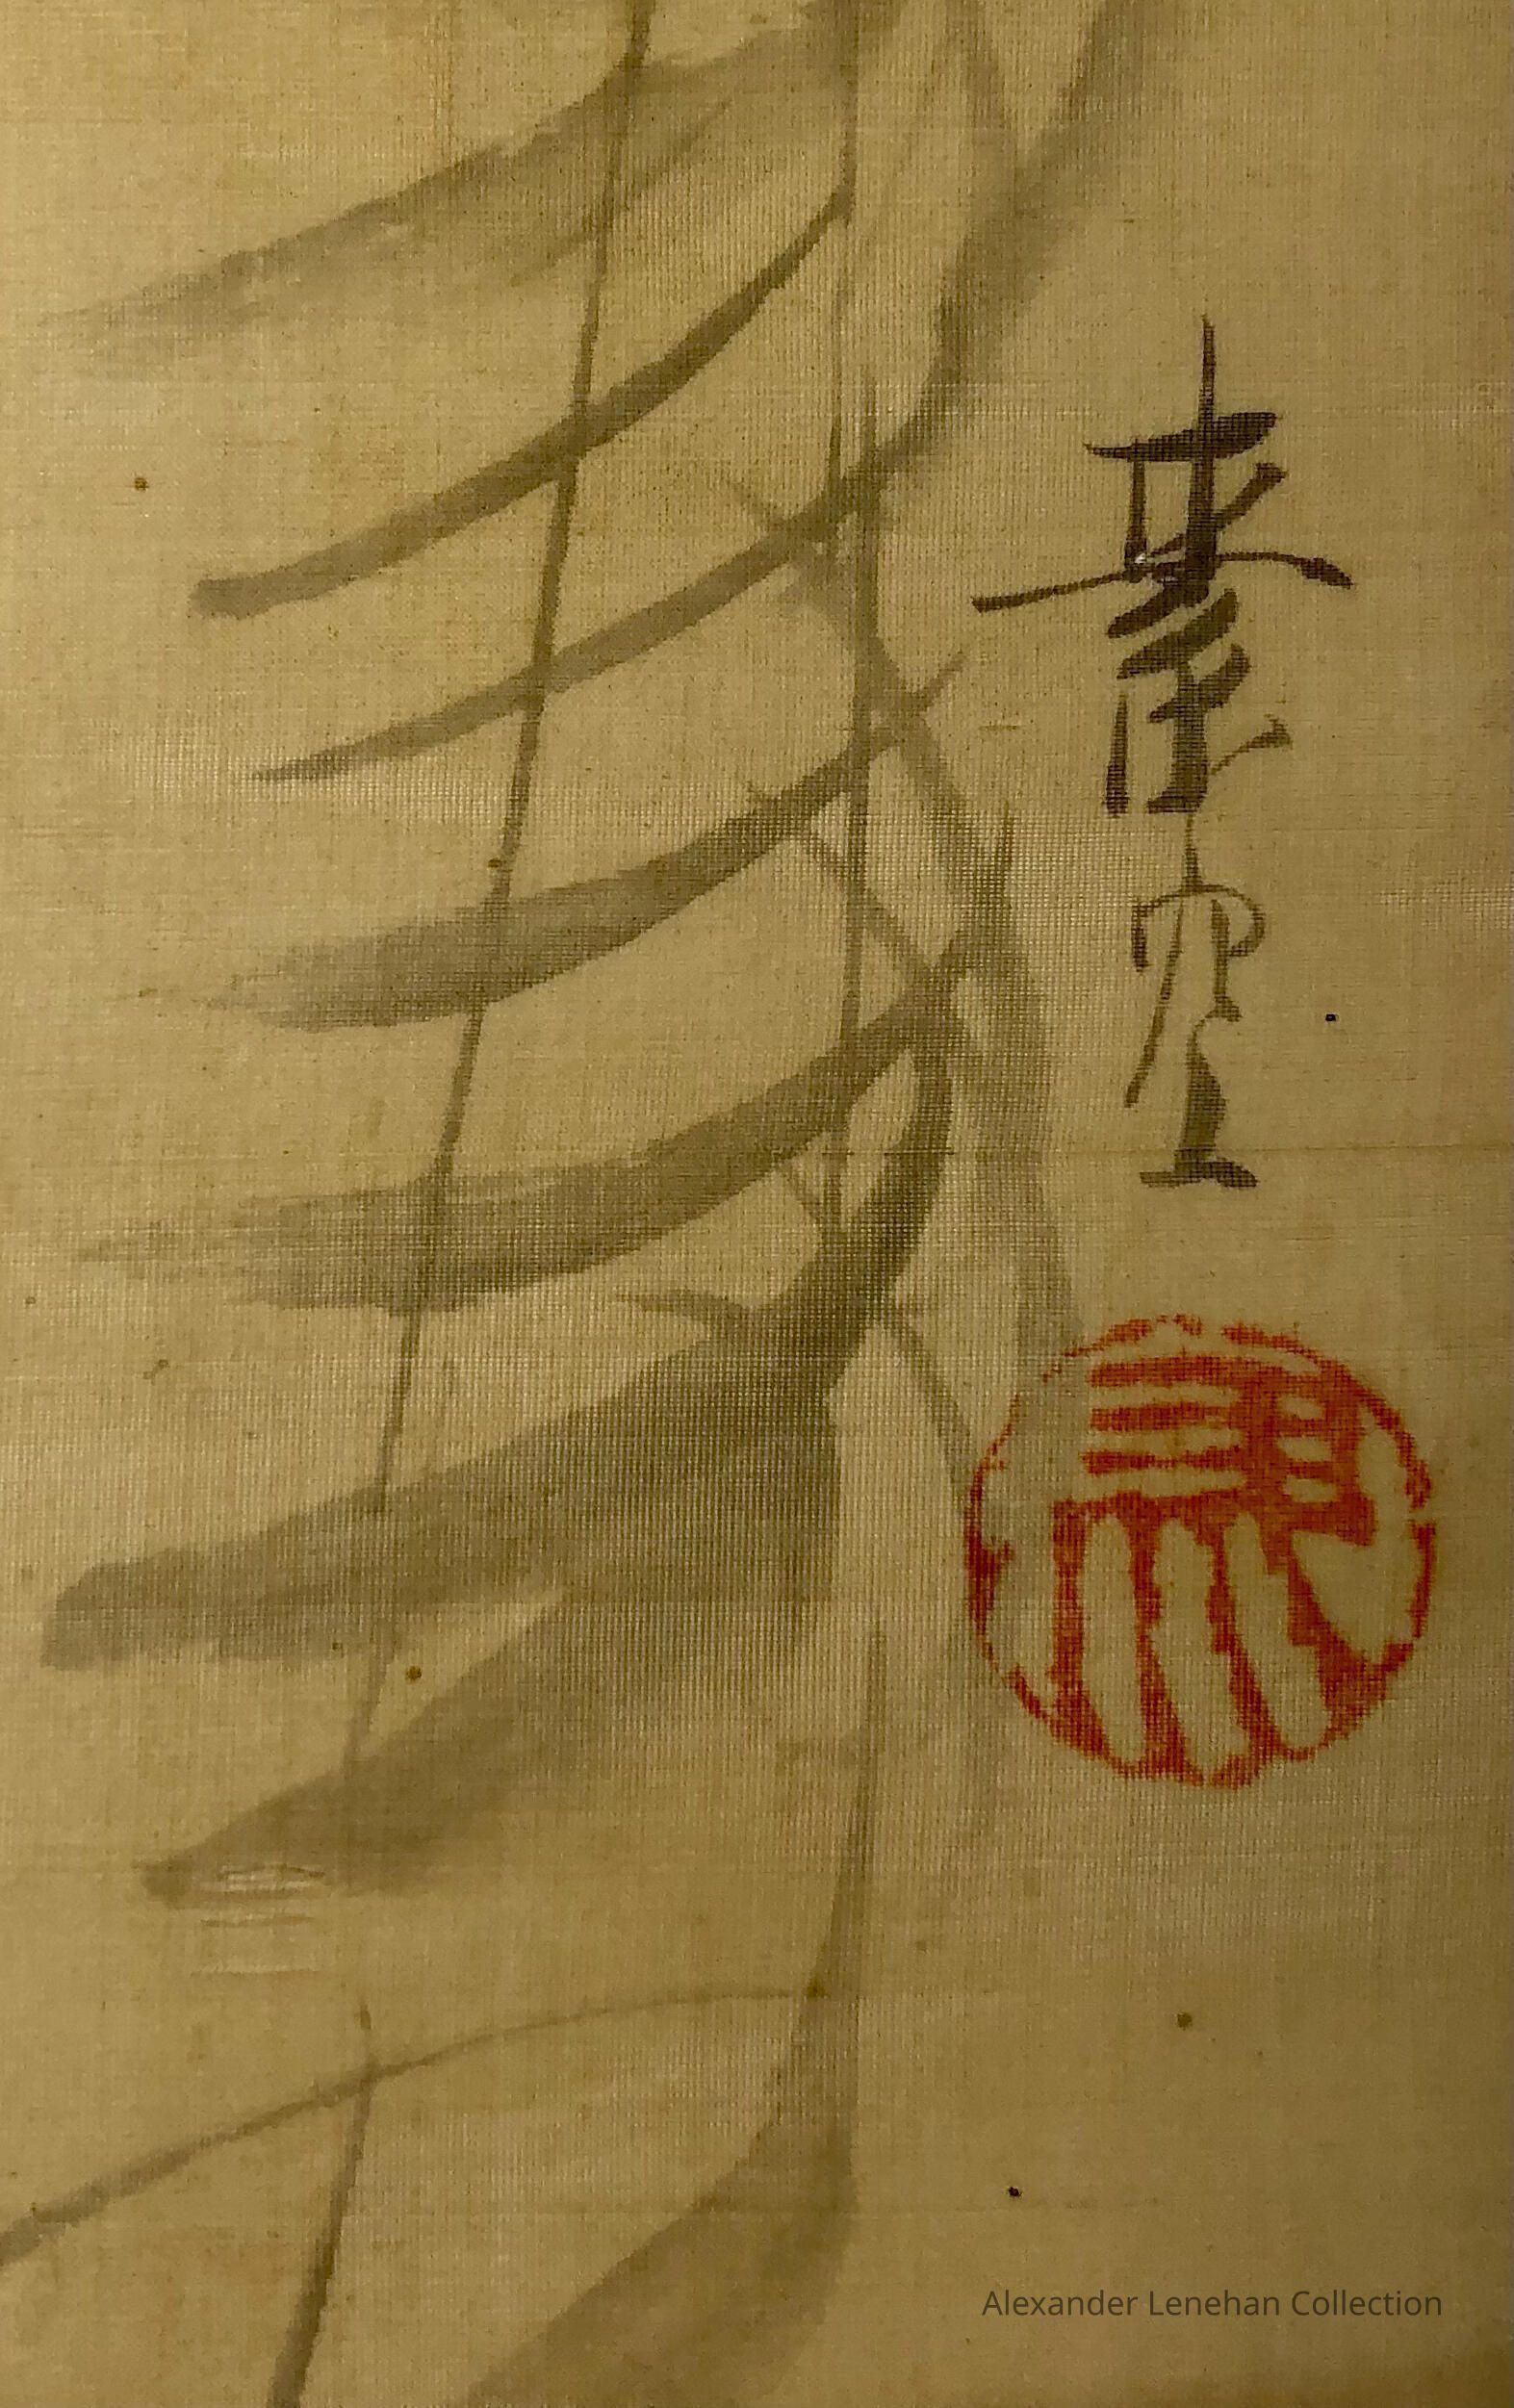 素空
Alexander Lenehan Collection